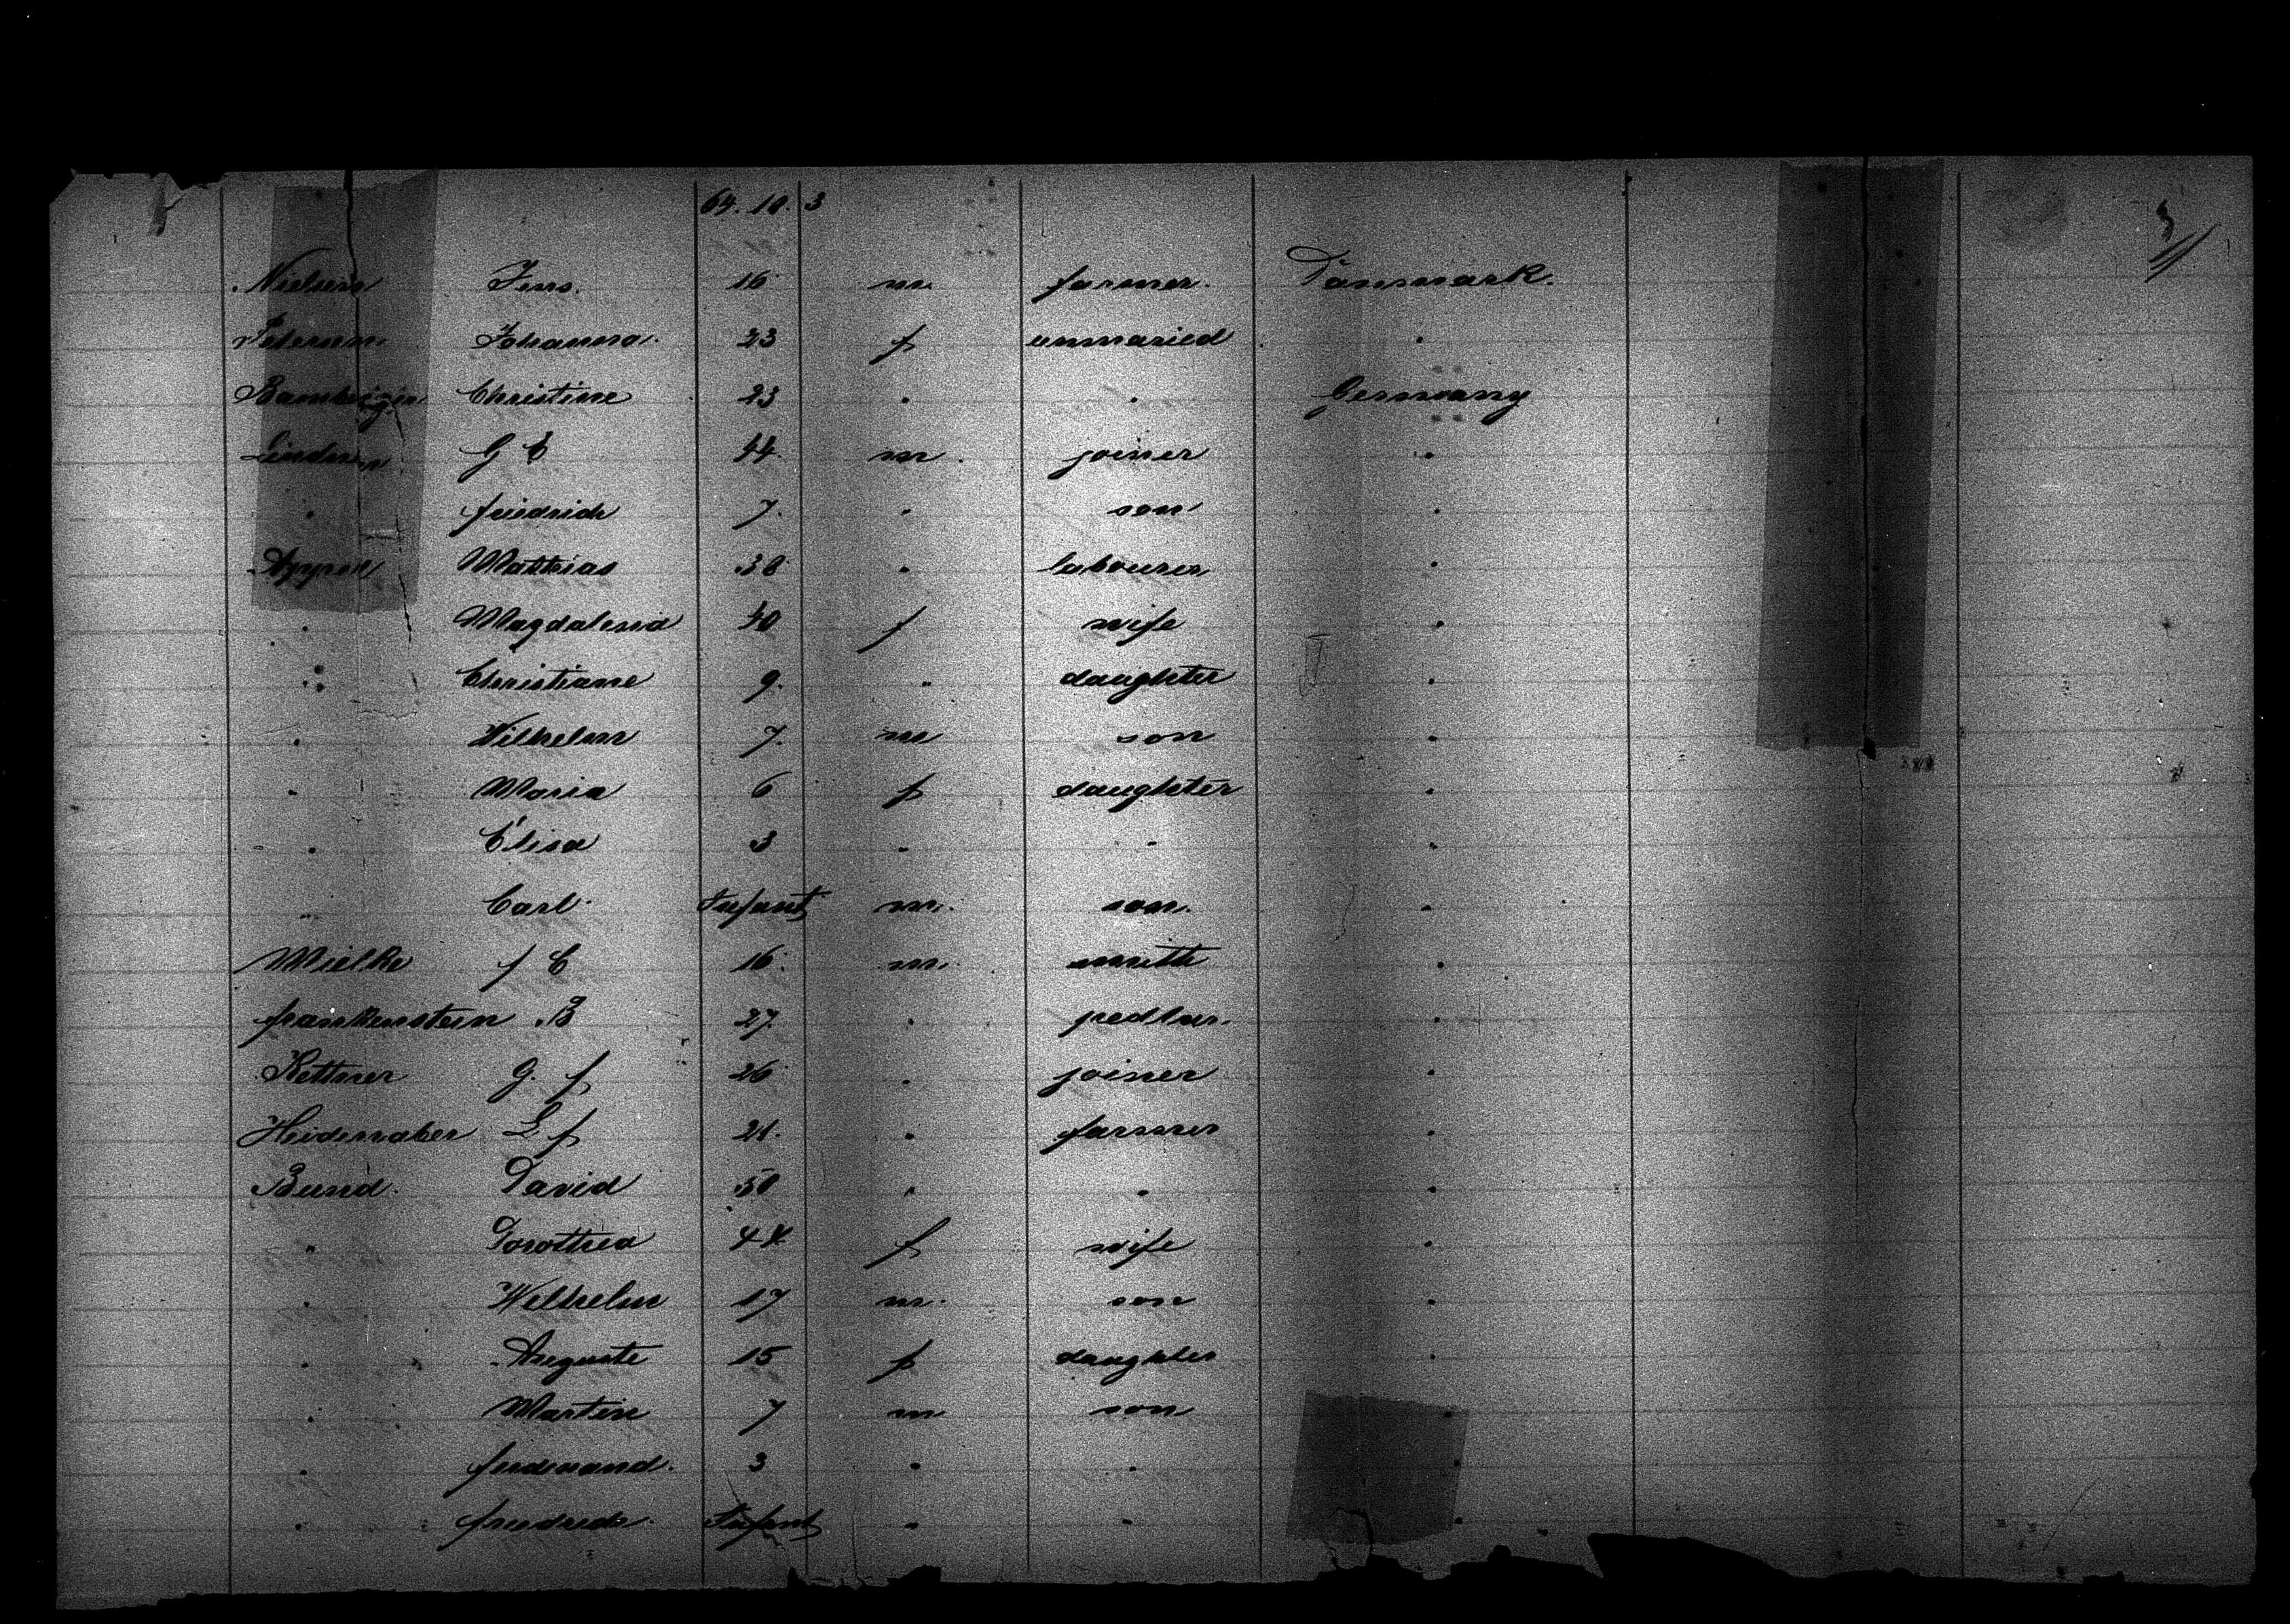 64. 10. 3
3
Nielsen Jens. 16 m. farmer. Danmark.
Petersen Johanna. 23 f unmaried "
Christine 23 " " Germany
G C 44. m. joiner "
" friedrich 7. " son "
Appel Mathias 38 " labourer "
" Magdalena 40 f wife "
" Christiane 9. " daughter "
" Wilhelm 7. m son "
" Maria 6 f daughter "
" Elisa 3 " " "
" Carl. Infant m. son. "
Mielke f C 16. m. smith "
frankenstein B 27. " pedlar. "
Kettner G. f 26 " joiner "
L f 21. " farmer "
Bund. David 50 " " "
" Dorothea 44 f wife "
" Wilhelm 17 m. son "
" Auguste 15 f daughter "
" Martin 7 m son "
" ferdinand. 3 " " "
" friedrich. Infant " " "